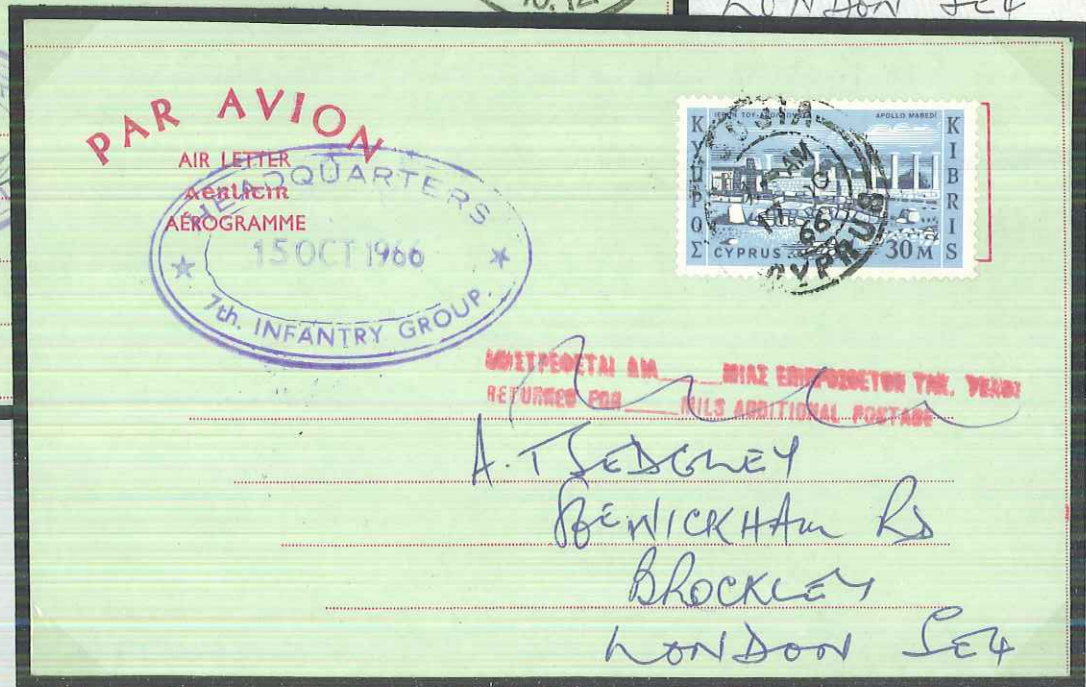 LONDON SE4
PAR AVION
AIR LETTER
AÉROGRAMME
HEADQUARTERS
15 OCT 1966
7th. INFANTRY GROUP.
ΚΥΠΡΟΣ
APOLLO MABEDİ
KIBRIS
CYPRUS
30 M
17
66
CYPRUS
RETURNED FOR ____ MILS ADDITIONAL POSTAGE
A. T SEDGLEY
WICKHAM RD
BROCKLEY
LONDON SE4